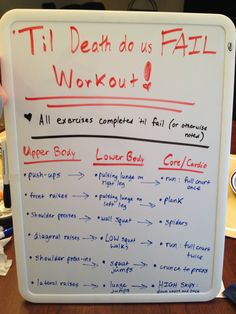 'Til Death do us FAIL
Workout!
♥ All exercises completed til fail (or otherwise
noted)
Upper Body Lower Body Core/Cardio
• push-ups → • pulsing lunge on → • run: full court
right leg once
• front raises → • pulsing lunge on → • plank
left leg
• shoulder presses → • wall squat → • spiders
• diagonal raises → • LOW squat → • run: full court
walks twice
• shoulder press-ins → • squat → • crunch to press
jumps
• lateral raises → • lunge → • HIGH SKIPS:
jumps down court and back